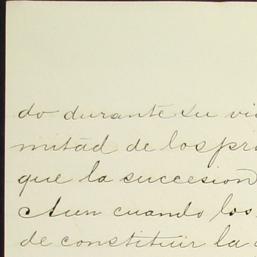 do durante su vi
mitad de los pri
que la succesion
Aun cuando los
de constituir la